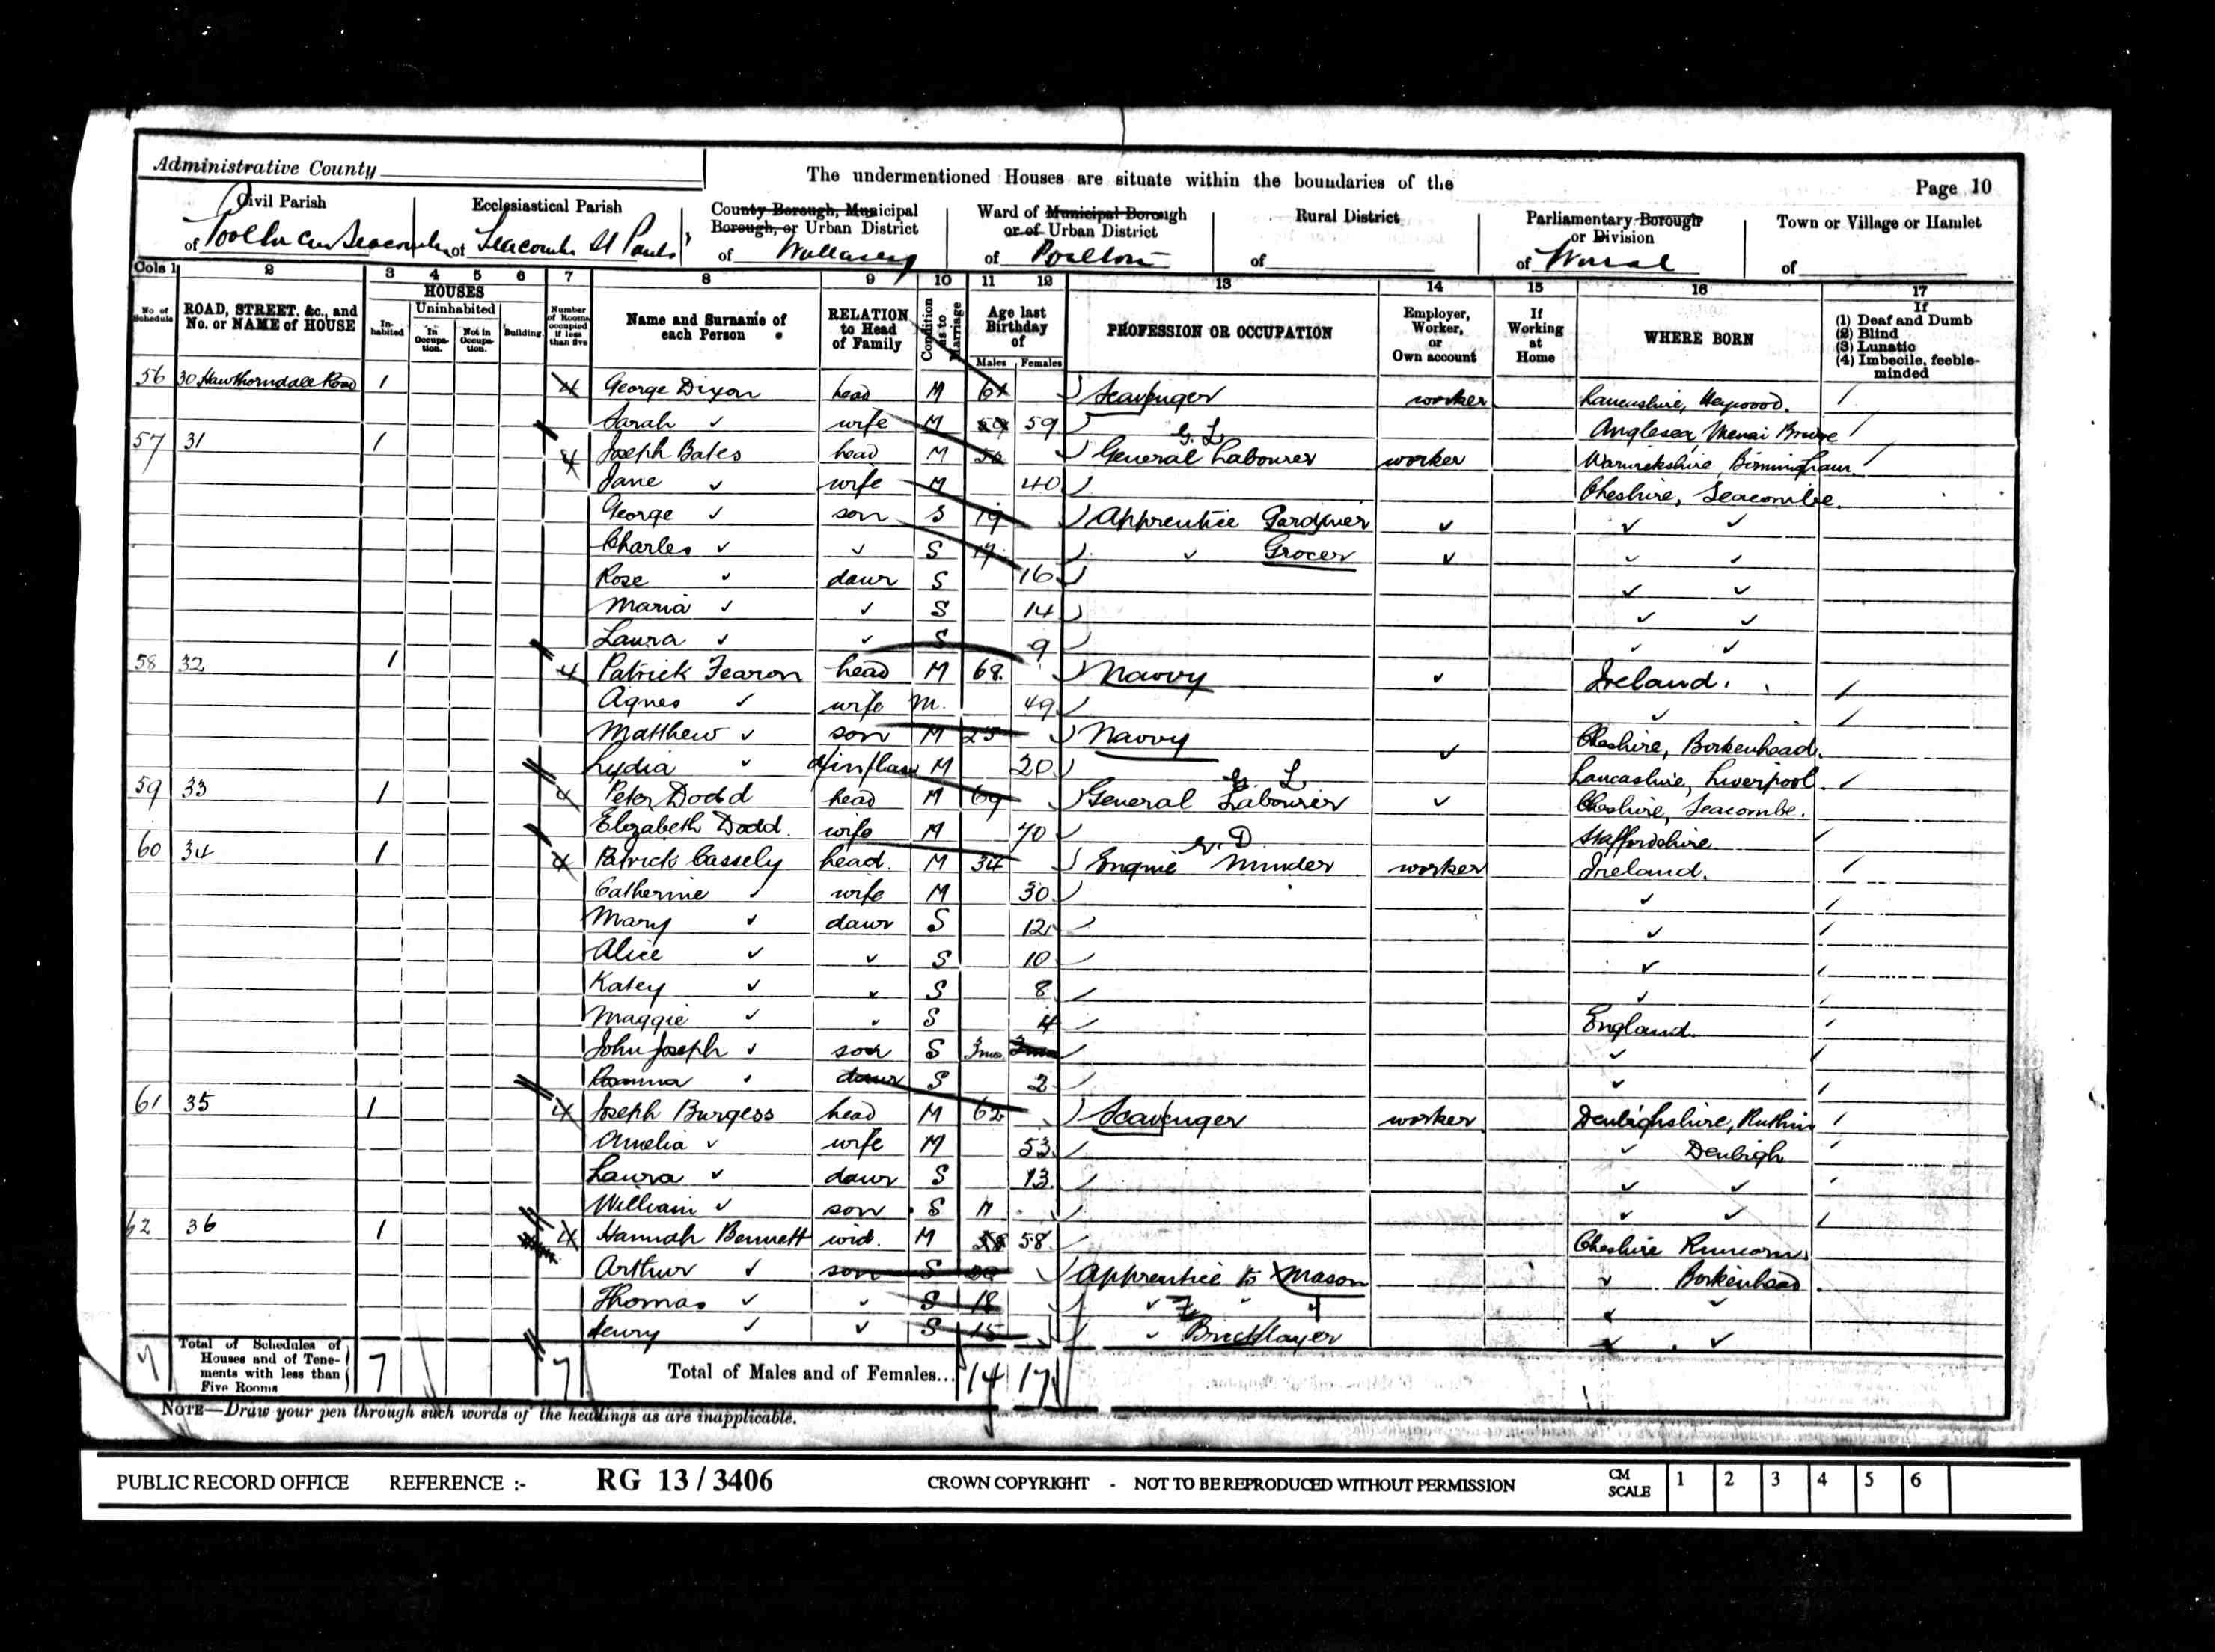 Administrative County
The undermentioned Houses are situate within the boundaries of the
Page 10
Civil Parish
of Poolton cum Seacombe
Ecclesiastical Parish
of Seacombe St Pauls
County Borough, Municipal
Borough, or Urban District
of Wallasey
Ward of Municipal Borough
or of Urban District
of Poulton
Rural District
of
Parliamentary Borough
or Division
of Wirral
Town or Village or Hamlet
of
Cols 1 2 3 4 5 6 7 8 9 10 11 12 13 14 15 16 17
No of Schedule
ROAD, STREET, &c., and No. or NAME of HOUSE
HOUSES
Inhabited
Uninhabited
In Occupation.
Not in Occupation.
Building.
Number of Rooms occupied if less than five
Name and Surname of each Person
RELATION to Head of Family
Condition as to Marriage
Age last Birthday of
Males Females
PROFESSION OR OCCUPATION
Employer, Worker, or Own account
If Working at Home
WHERE BORN
If
(1) Deaf and Dumb
(2) Blind
(3) Lunatic
(4) Imbecile, feeble-minded
56 30 Hawthorndale Road 1 4 George Dixon head M 61 Scavenger worker Lancashire, Heywood.
Sarah ✓ wife M 59 59 Anglesea Menai Bridge
57 31 1 4 Joseph Bates head M G. L General Labourer worker Warwickshire, Birmingham.
Jane ✓ wife M 40 Cheshire, Seacombe.
George ✓ son S 19 Apprentice Gardener ✓ ✓ ✓
Charles ✓ ✓ S 17 ✓ Grocer ✓ ✓ ✓
Rose ✓ daur S 16 ✓ ✓
Maria ✓ ✓ S 14 ✓ ✓
Laura ✓ ✓ S 9 ✓ ✓
58 32 1 4 Patrick Fearon head M 68 Navvy ✓ Ireland.
Agnes ✓ wife M. 49 ✓
Matthew ✓ son M 25 Navvy ✓ Cheshire, Birkenhead.
Lydia ✓ d/inlaw M 20 Lancashire, Liverpool.
59 33 1 4 Peter Dodd head M 69 G. L General Labourer ✓ Cheshire, Seacombe.
Elizabeth Dodd. wife M 70 Staffordshire
60 34 1 4 Patrick Cassely head. M 34 Engine Minder worker Ireland.
Catherine ✓ wife M 30 ✓
Mary ✓ daur S 12 ✓
Alice ✓ ✓ S 10 ✓
Katey ✓ ✓ S 8 ✓
Maggie ✓ ✓ S 4 England.
John Joseph ✓ son S 3mo. 3mo ✓
Rosanna ✓ daur S 2 ✓
61 35 1 4 Joseph Burgess head M 62 Scavenger worker Denbighshire, Ruthin
Amelia ✓ wife M 53 ✓ Denbigh
Laura ✓ daur S 13 ✓ ✓
William ✓ son S 11 ✓ ✓
62 36 1 4 Hannah Bennett wid. M 58 58 Cheshire Runcorn
Arthur ✓ son S 20 Apprentice to Mason ✓ Birkenhead
Thomas ✓ ✓ S 18 ✓ ✓ ✓
Henry ✓ ✓ S 15 ✓ Bricklayer ✓ ✓
7 Total of Schedules of Houses and of Tenements with less than Five Rooms 7 7 Total of Males and of Females... 14 17
NOTE—Draw your pen through such words of the headings as are inapplicable.
PUBLIC RECORD OFFICE REFERENCE :- RG 13 / 3406 CROWN COPYRIGHT - NOT TO BE REPRODUCED WITHOUT PERMISSION CM SCALE 1 2 3 4 5 6